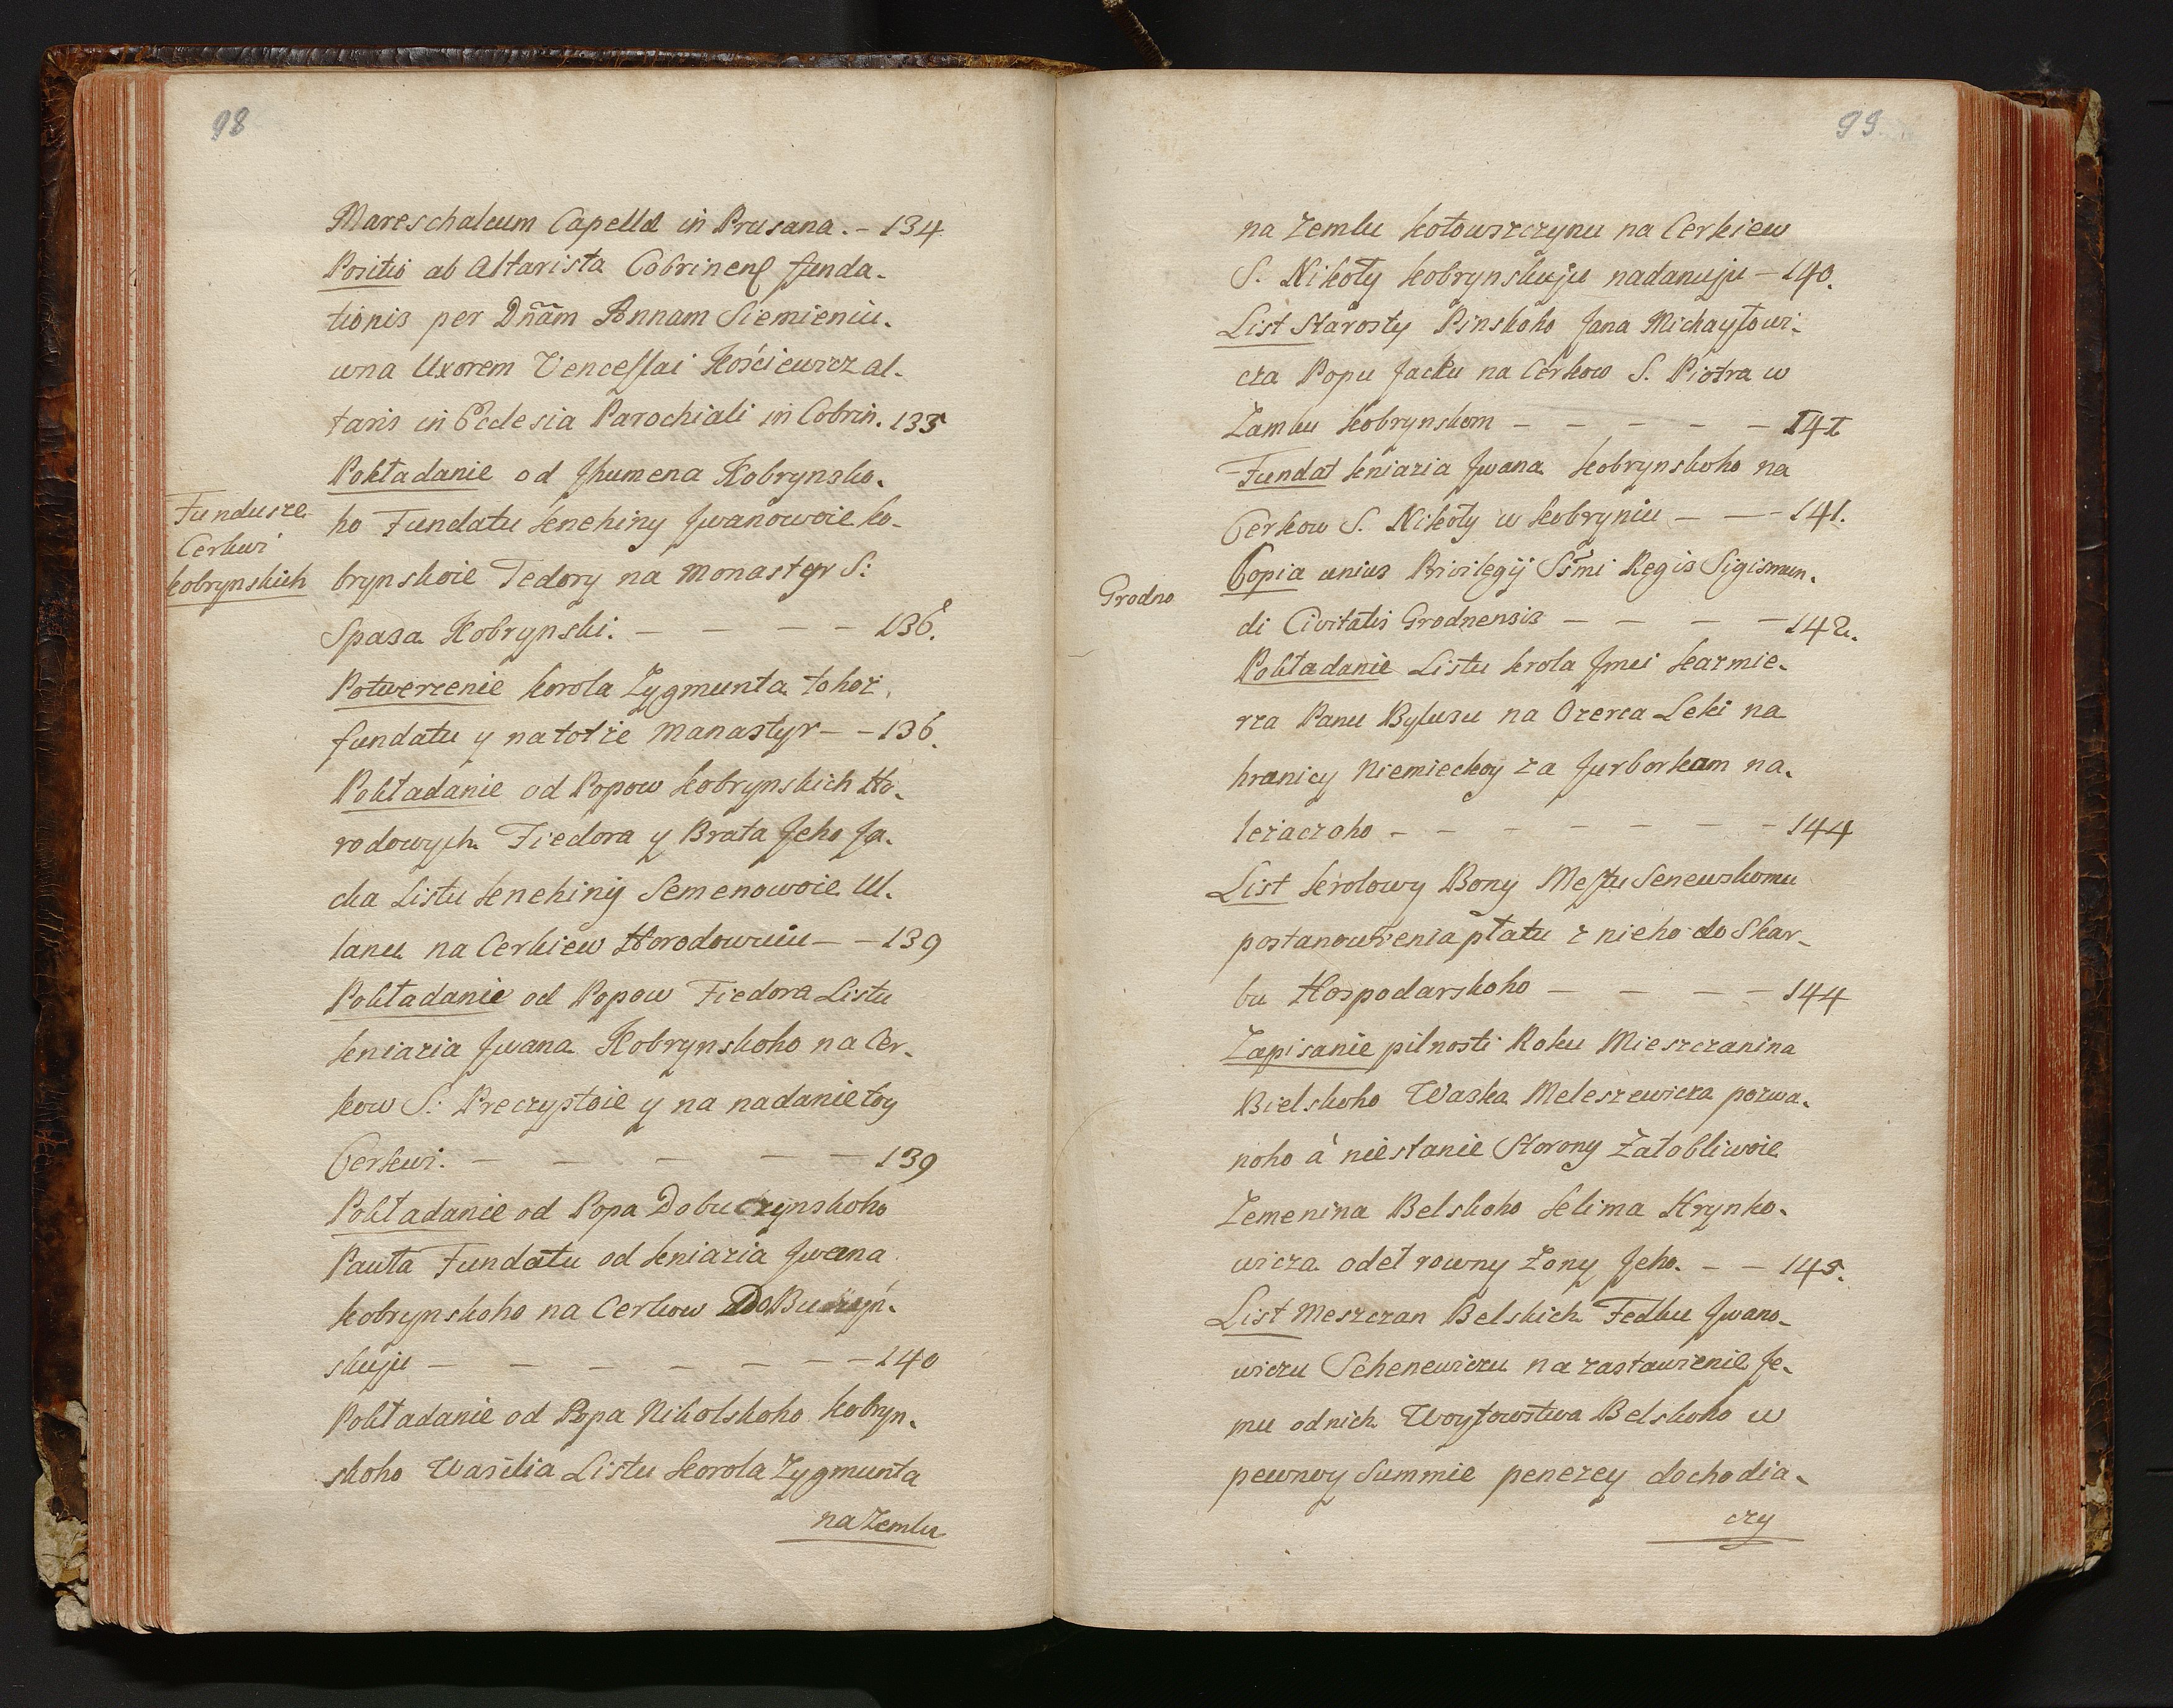 98
Mareschalcum Capellæ in Prusana. - 134
Positio ab Altarista Cobrinens funda-
tionis per Dñam Annam Siemieniu-
wna Uxorem Venceslai Kościewicz al-
taris in Ecclesia Parochiali in Cobrin. 135
Pokładanie od Jhumena Kobrynsko-
Fundusze
Cerkwi
kobrynskich
ho Fundatu kenehiny Jwanowoie ko-
brynskoie Fedory na monastyr S:
Spasa Kobrynski. — — — — 136.
Potwerzenie korola Zygmunta tohoż
fundatu y na totże manastyr - - 136.
Pokładanie od Popow kobrynskich Ho-
rodowych Fiedora y Brata Jeho Ja-
cka Listu kenehiny Semenowoie Ul-
lanu na Cerkiew Horodowuiu - - 139
Pokładanie od Popow Fiedora Listu
keniazia Jwana Kobrynskoho na Cer-
kow S: Preczystoie y na nadanie toy
Cerkwi. — — — — — 139
Pokładanie od Popa Dobuczynskoho
Pauła Fundatu od keniazia Jwana
kobrynskoho na Cerkow DoBuczyń-
skuju — — — — — — 140
Pokładanie od Popa Nikolskoho kobryn-
skoho Wasilia Listu korola Zygmunta
na Zemlu
99.
na Zemlu kołowszczynu na Cerkiew
S. Nikoły kobrynskuju nadanuju - 140.
List Starosty Pinskoho Jana Michayłowi-
cza Popu Jacku na Cerkow S. Piotra w
Zamku kobrynskom — — — — — 141
Fundat keniazia Jwana kobrynskoho na
Cerkow S. Nikoły w kobryniu — — 141.
Grodno
Copia unius Privilegij Ssmi Regis Sigismun-
di Civitatis Grodnensis — — — — 142.
Pokładanie Listu krola Jmci kazmie-
rza Panu Bylusu na Ozerca Leki na
hranicy Niemieckoy za Jurborkam na-
leżaczoho - — — — — — — 144
List krolowy Bony Mestu Senewskomu
postanowienia płatu z nieho do Skar-
bu Hospodarskoho — — — — 144
Zapisanie pilnosti Roku Mieszczanina
Bielskoho Waska Meleszewicza pozwa-
noho à niestanie Storony Załobliwoie
Zemenina Belskoho kelima Hrynko-
wicza odet rowny Zony Jeho. - - 145.
List Meszczan Belskich Fedku Jwano-
wiczu Sehenewiczu na zastawienie Je-
mu od nich Woytowstwa Belskoho w
pewnoy Summie penezey dochodia-
czy